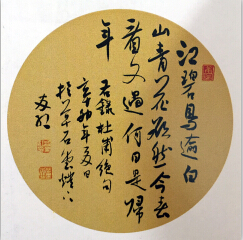 江碧鳥逾白
山青花欲然今春
看又過何日是歸
年
右錄杜甫絕句
辛卯年夏日
於草石堂